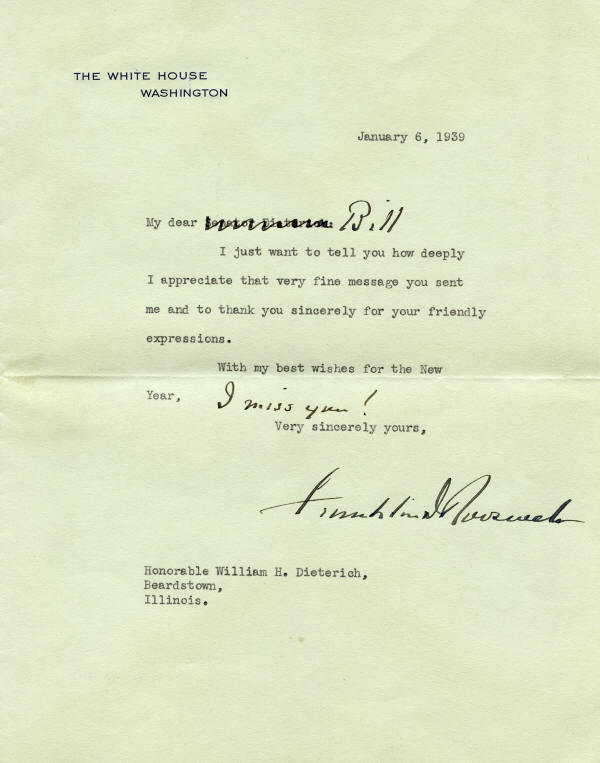 THE WHITE HOUSE
WASHINGTON
January 6, 1939
My dear Senator Dieterich: Bill
I just want to tell you how deeply
I appreciate that very fine message you sent
me and to thank you sincerely for your friendly
expressions.
With my best wishes for the New
Year, I miss you!
Very sincerely yours,
Franklin D Roosevelt
Honorable William H. Dieterich,
Beardstown,
Illinois.